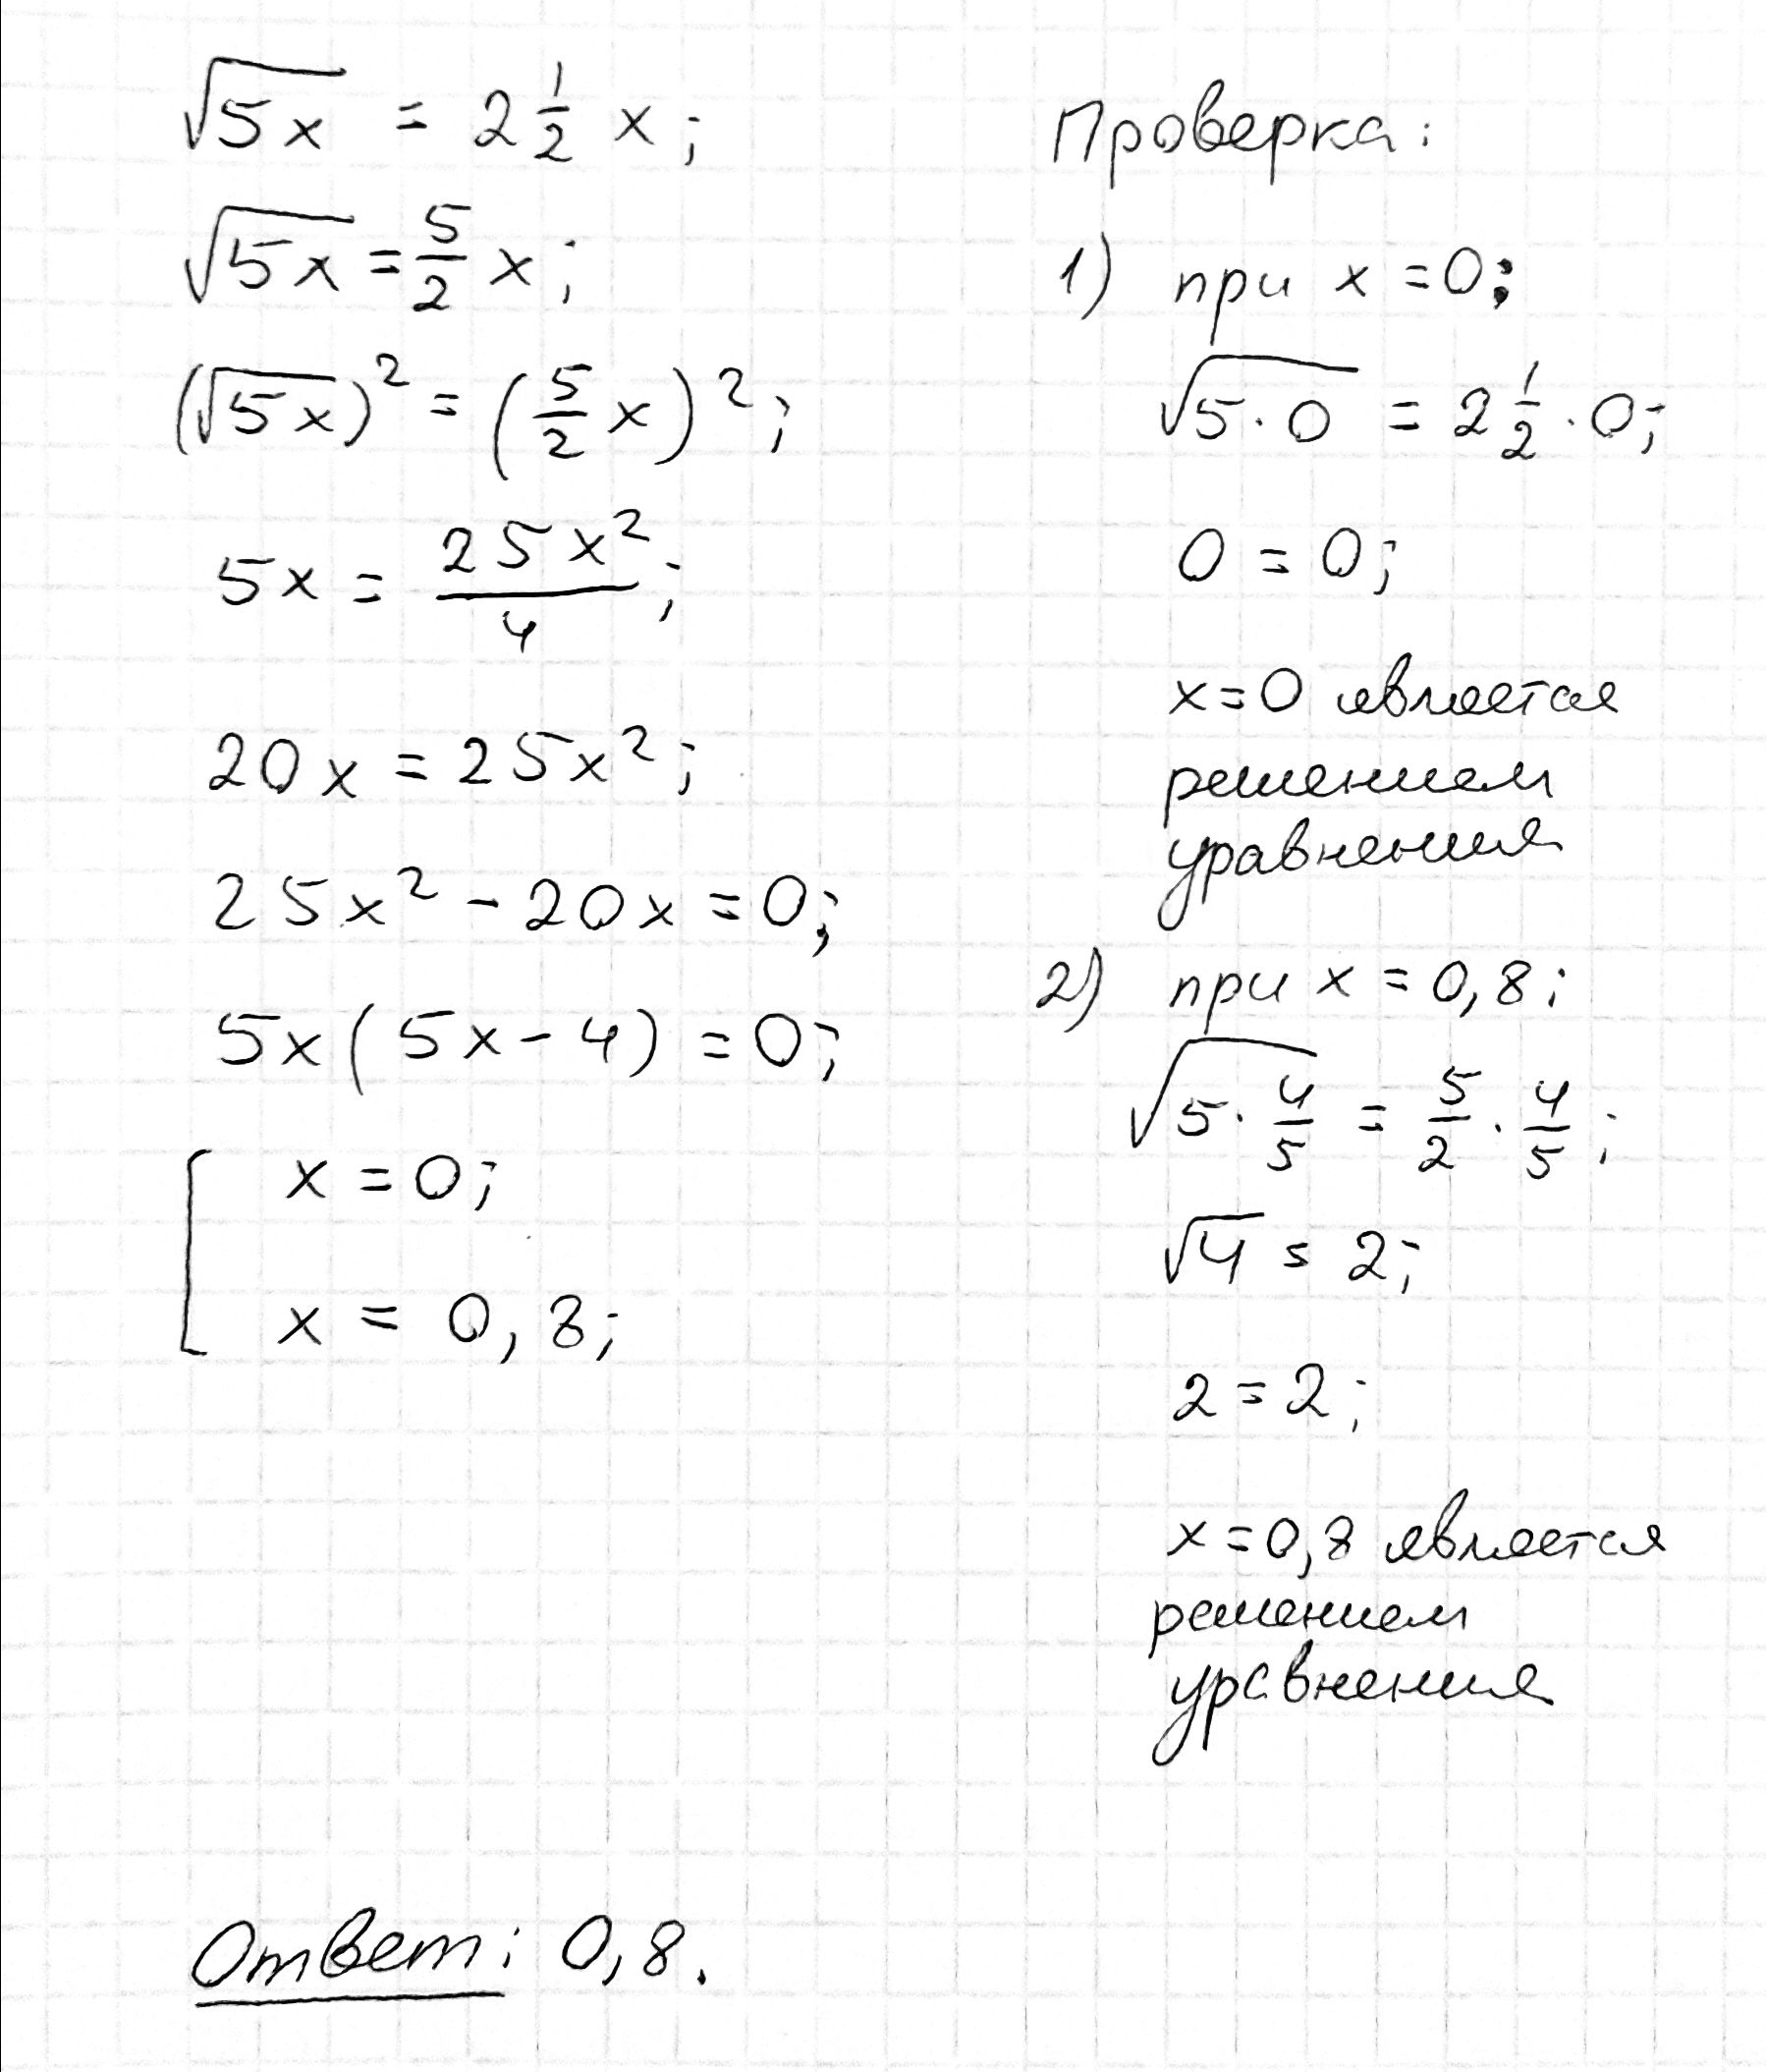 √5x = 2 1/2 x;
√5x = 5/2 x;
(√5x)² = (5/2 x)²;
5x = 25x²/4;
20x = 25x²;
25x² - 20x = 0;
5x(5x - 4) = 0;
[ x = 0;
x = 0,8;
Проверка:
1) при x = 0:
√5·0 = 2 1/2 · 0;
0 = 0;
x = 0 является
решением
уравнения
2) при x = 0,8:
√5·4/5 = 5/2 · 4/5;
√4 = 2;
2 = 2;
x = 0,8 является
решением
уравнения
Ответ: 0,8.